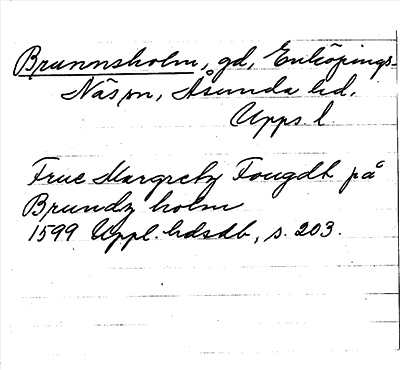 Brunnsholm, gd, Enköpings-
Näs sn, Åsunda hd.
Upps. l
Frue Margrety Fougdt på
Brundz holm
1599 Uppl. hdsdb, s. 203.